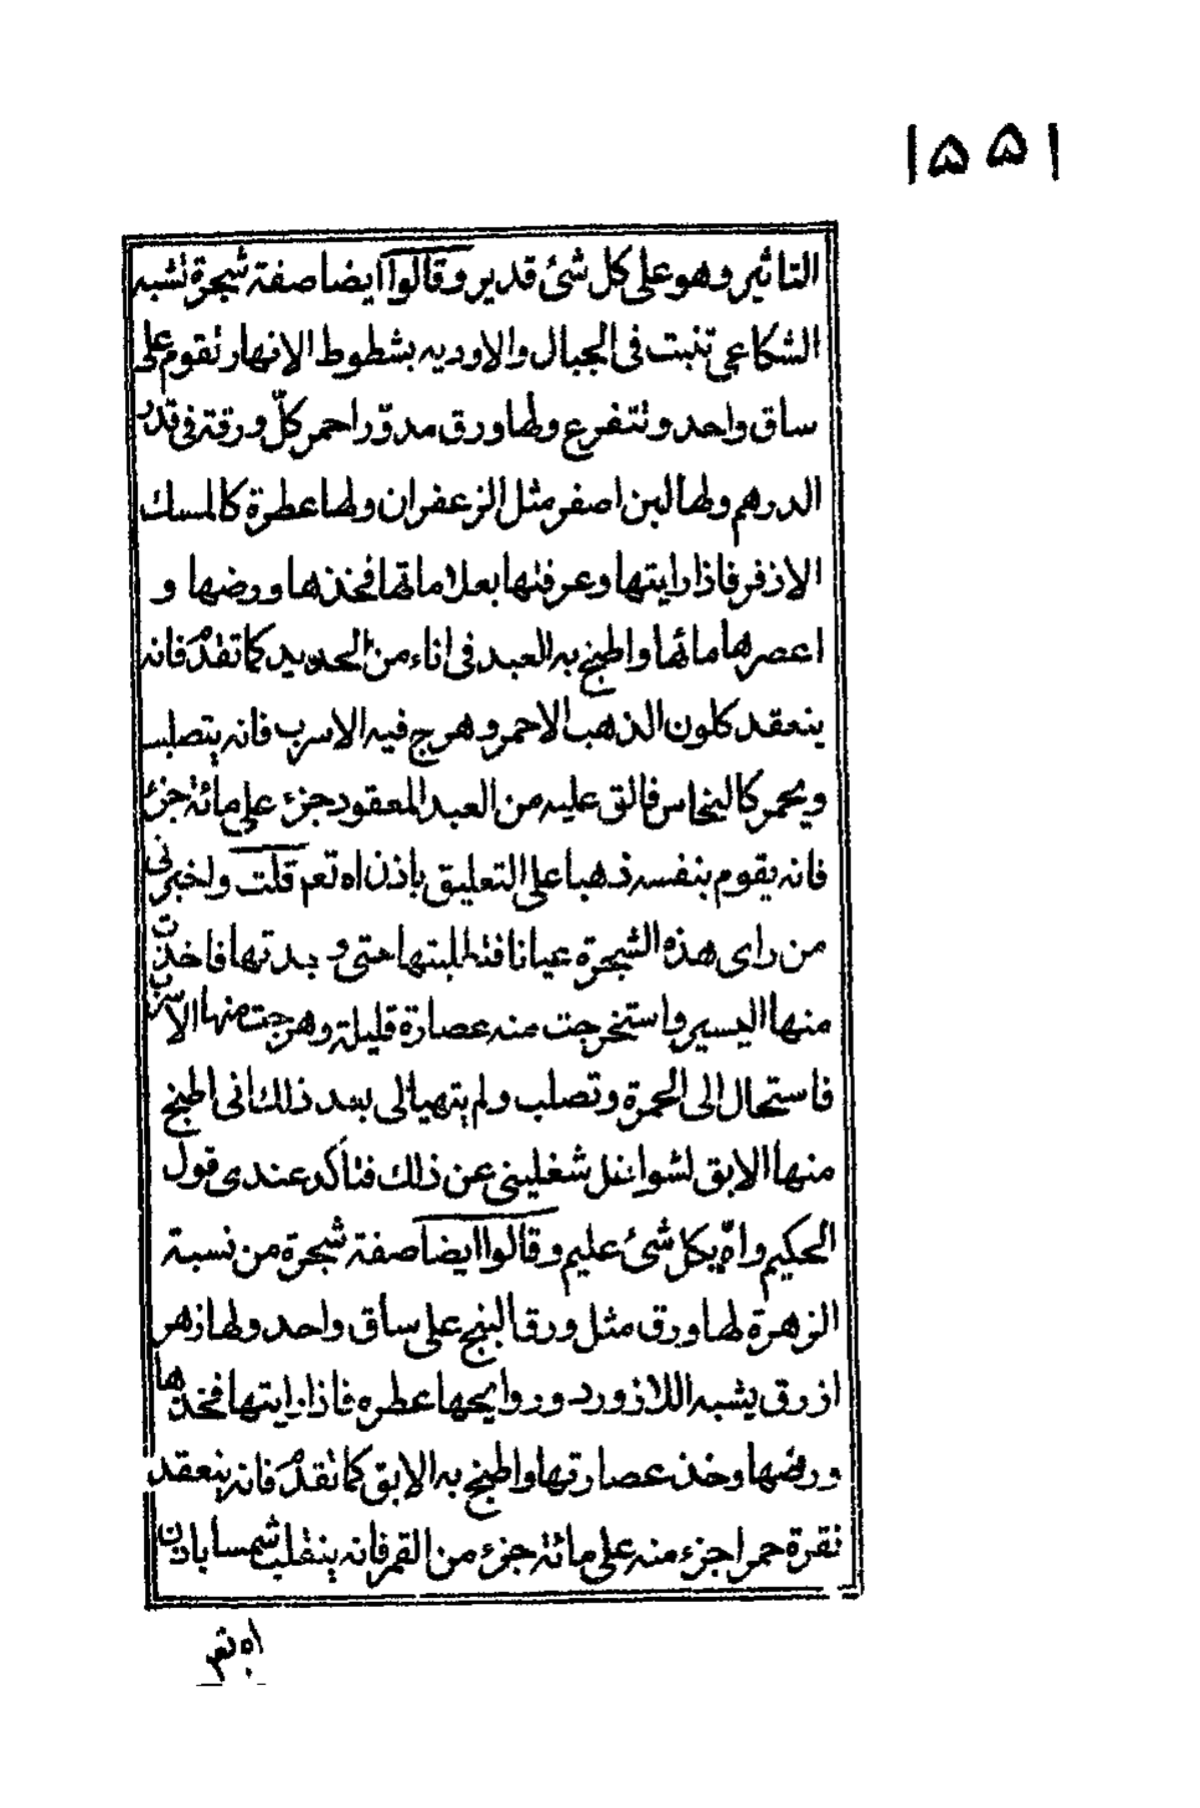 ١٥٥١
التاثير وهو على كل شئ قدير وقالوا ايضا صفة شجرة تشبه
الشكاعى تنبت فى الجبال والاوديه بشطوط الانهار تقوم على
ساق واحد وتتفرع ولها ورق مدوّر احمر كلّ ورقة فى قدر
الدرهم ولها لبن اصفر مثل الزعفران ولها عطرة كالمسك
الاذفر فاذا رايتها وعرفتها بعلاماتها فخذها ورضها و
اعصرها مائها واطبخ به العبد فى اناء من الحديد كما تقدم فانه
ينعقد كلون الذهب الاحمر وهرج فيه الاسرب فانه يتصلب
ويحمر كالنحاس فالق عليه من العبد المعقود جزء على مائة جزئ
فانه يقوم بنفسه ذهبا على التعليق باذن اه تعم قلت واخبرنى
من راى هذه الشجرة عيانا فتطلبتها حتى وجدتها فاخذت
منها اليسير واستخرجت منه عصارة قليلة وهرجت منها الاسرب
فاستحال الى الحمرة وتصلب ولم يتهيا لى بعد ذلك انى اطبخ
منها الابق لشواغل شغلينى عن ذلك فتأكد عندى قول
الحكيم واه بكل شئ عليم وقالوا ايضا صفة شجرة من نسبة
الزهرة لها ورق مثل ورق البنج على ساق واحد ولها زهر
ازرق يشبه اللازورد وروايحها عطره فاذا رايتها فخذها
ورضها وخذ عصارتها واطبخ به الابق كما تقدم فانه ينعقد
نقرة حمرا جزء منه على مائة جزء من القمر فانه ينقلب شمسا باذن
اه تعم